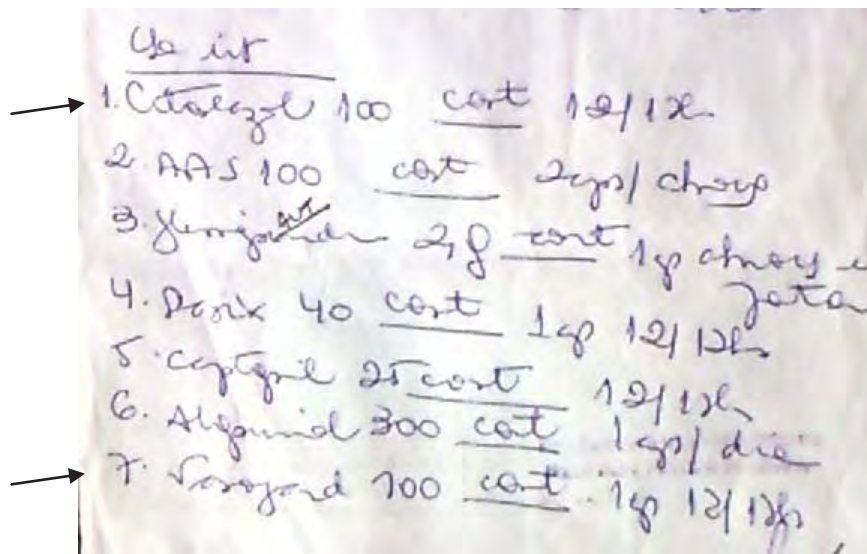 Uso int
1. Cilostazol 100 cont 12/12h
2. AAS 100 cont 2cps/almoço
3. 2,8 cont 1cp almoço e
jantar
4. Lasix 40 cont 1cp 12/12h
5. Captopril 25 cont 12/12h
6. Alopurinol 300 cont 1cp/dia
7. Vasogard 100 cont 1cp 12/12hs